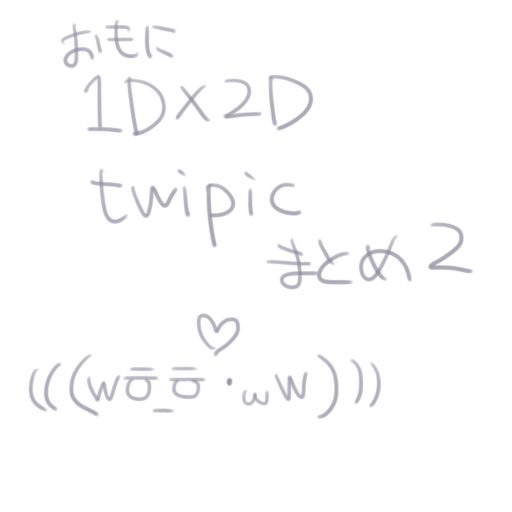 おもに
1D×2D
twipic
まとめ2
♡
(((wㅎ_ㅎ・ωw)))